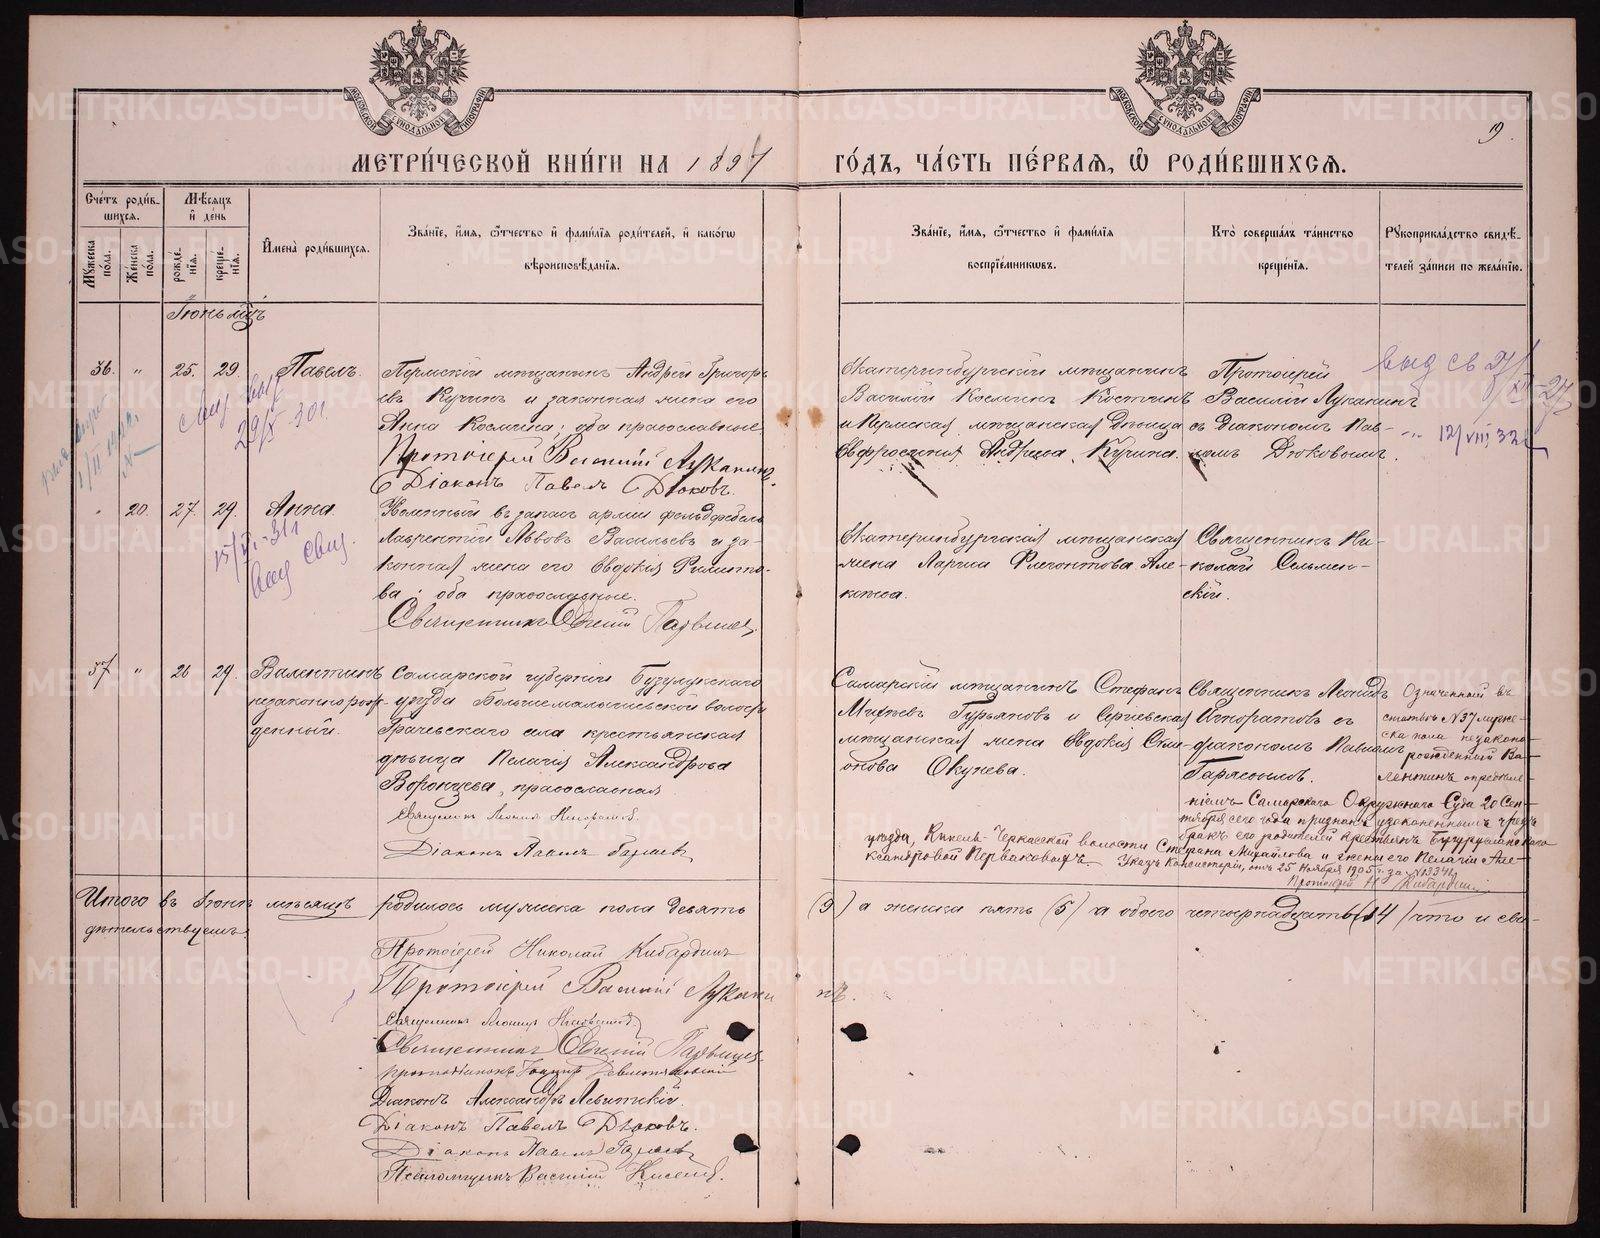 МЕТРИ́ЧЕСКОЙ КНИ́ГИ НА 1897 ГО́ДЪ, ЧА́СТЬ ПЕ́РВАЯ, Ѿ РОДИ́ВШИХСЯ.
19.
Сче́тъ роди́в-
шихся.
Мѣ́сяцъ
и҆ де́нь
Му́жеска по́ла.
Же́нска по́ла.
рожде́-
нїя.
креще́-
нїя.
И҆мена̀ роди́вшихся.
Зва́нїе, и҆́мя, ѻ҆́тчество и҆ фами́лїя роди́телей, и҆ како́гѡ
вѣроисповѣ́данїя.
Зва́нїе, и҆́мя, ѻ҆́тчество и҆ фами́лїя
воспрїе́мникѡвъ.
Кто̀ соверша́лъ та́инство
креще́нїя.
Рꙋкоприкла́дство свидѣ́-
телей за́писи по жела́нїю.
Іюнь мѣсяцъ
36. " 25. 29. Павелъ.
Пермскій мѣщанинъ Андрей Григорь-
евъ Кучинъ и законная жена его
Анна Космина; оба православные.
Протоіерей Василій Луканинъ.
Діаконъ Павелъ Дюковъ.
Екатеринбургскій мѣщанинъ
Василій Косминъ Костинъ
и Пермская мѣщанская дѣвица
Евфросинія Андреева Кучина.
Протоіерей
Василій Луканинъ
съ діакономъ Пав-
ломъ Дюковымъ.
выд св
12/VIII 32
29/X 30 г.
" 20. 27. 29. Анна.
15/VI-31 г
выд свид.
Уволенный въ запасъ арміи фельдфебель
Лаврентій Львовъ Васильевъ и за-
конная жена его Евдокія
оба православные.
Священникъ Евгеній
Екатеринбургская мѣщанская
жена Лариса Флегонтова Але-
Священникъ Ни-
колай Сельмен-
скій.
37 " 26 29. Валентинъ
незаконнорож-
денный.
Самарской губерніи Бузулукскаго
уѣзда волости
Грачевскаго села крестьянская
дѣвица Пелагія Александрова
Воронцева, православная
Священникъ Леонидъ Игноратовъ.
Діаконъ Павелъ Гаряевъ
Самарскій мѣщанинъ Стефанъ
Михѣевъ Гурьяновъ и Сергіевская
мѣщанская жена Евдокія Сим-
онова Окунева.
Священникъ Леонидъ
Игноратовъ съ
діакономъ Павломъ
Гаряевымъ.
Означенный въ
статьѣ №37 муже-
ска пола незаконно-
рожденный Ва-
лентинъ опредѣле-
ніемъ Самарскаго Окружнаго Суда 20 Сен-
тября сего года признанъ узаконеннымъ чрезъ
бракъ его родителей крестьянъ Бугурусланскаго
уѣзда, Кинель-Черкасской волости Стефана Михайлова и жены его Пелагіи Але-
ксандровой Перваковыхъ. Указъ Консисторіи, отъ 25 Ноября 1905 г. за №13341.
Протоіерей Н. Кибардинъ
Итого въ Іюнѣ мѣсяцѣ родилось мужеска пола девять (9) а женска пять (5) а обоего четырнадцать (14) что и сви-
дѣтельствуемъ:
Протоіерей Николай Кибардинъ
Протоіерей Василій Луканинъ.
Священникъ Леонидъ Игноратовъ
Священникъ Евгеній
протодіаконъ
Діаконъ Александръ Левитскій.
Діаконъ Павелъ Дюковъ.
Діаконъ Павелъ Гаряевъ
Псаломщикъ Василій Киселевъ.
METRIKI.GASO-URAL.RU